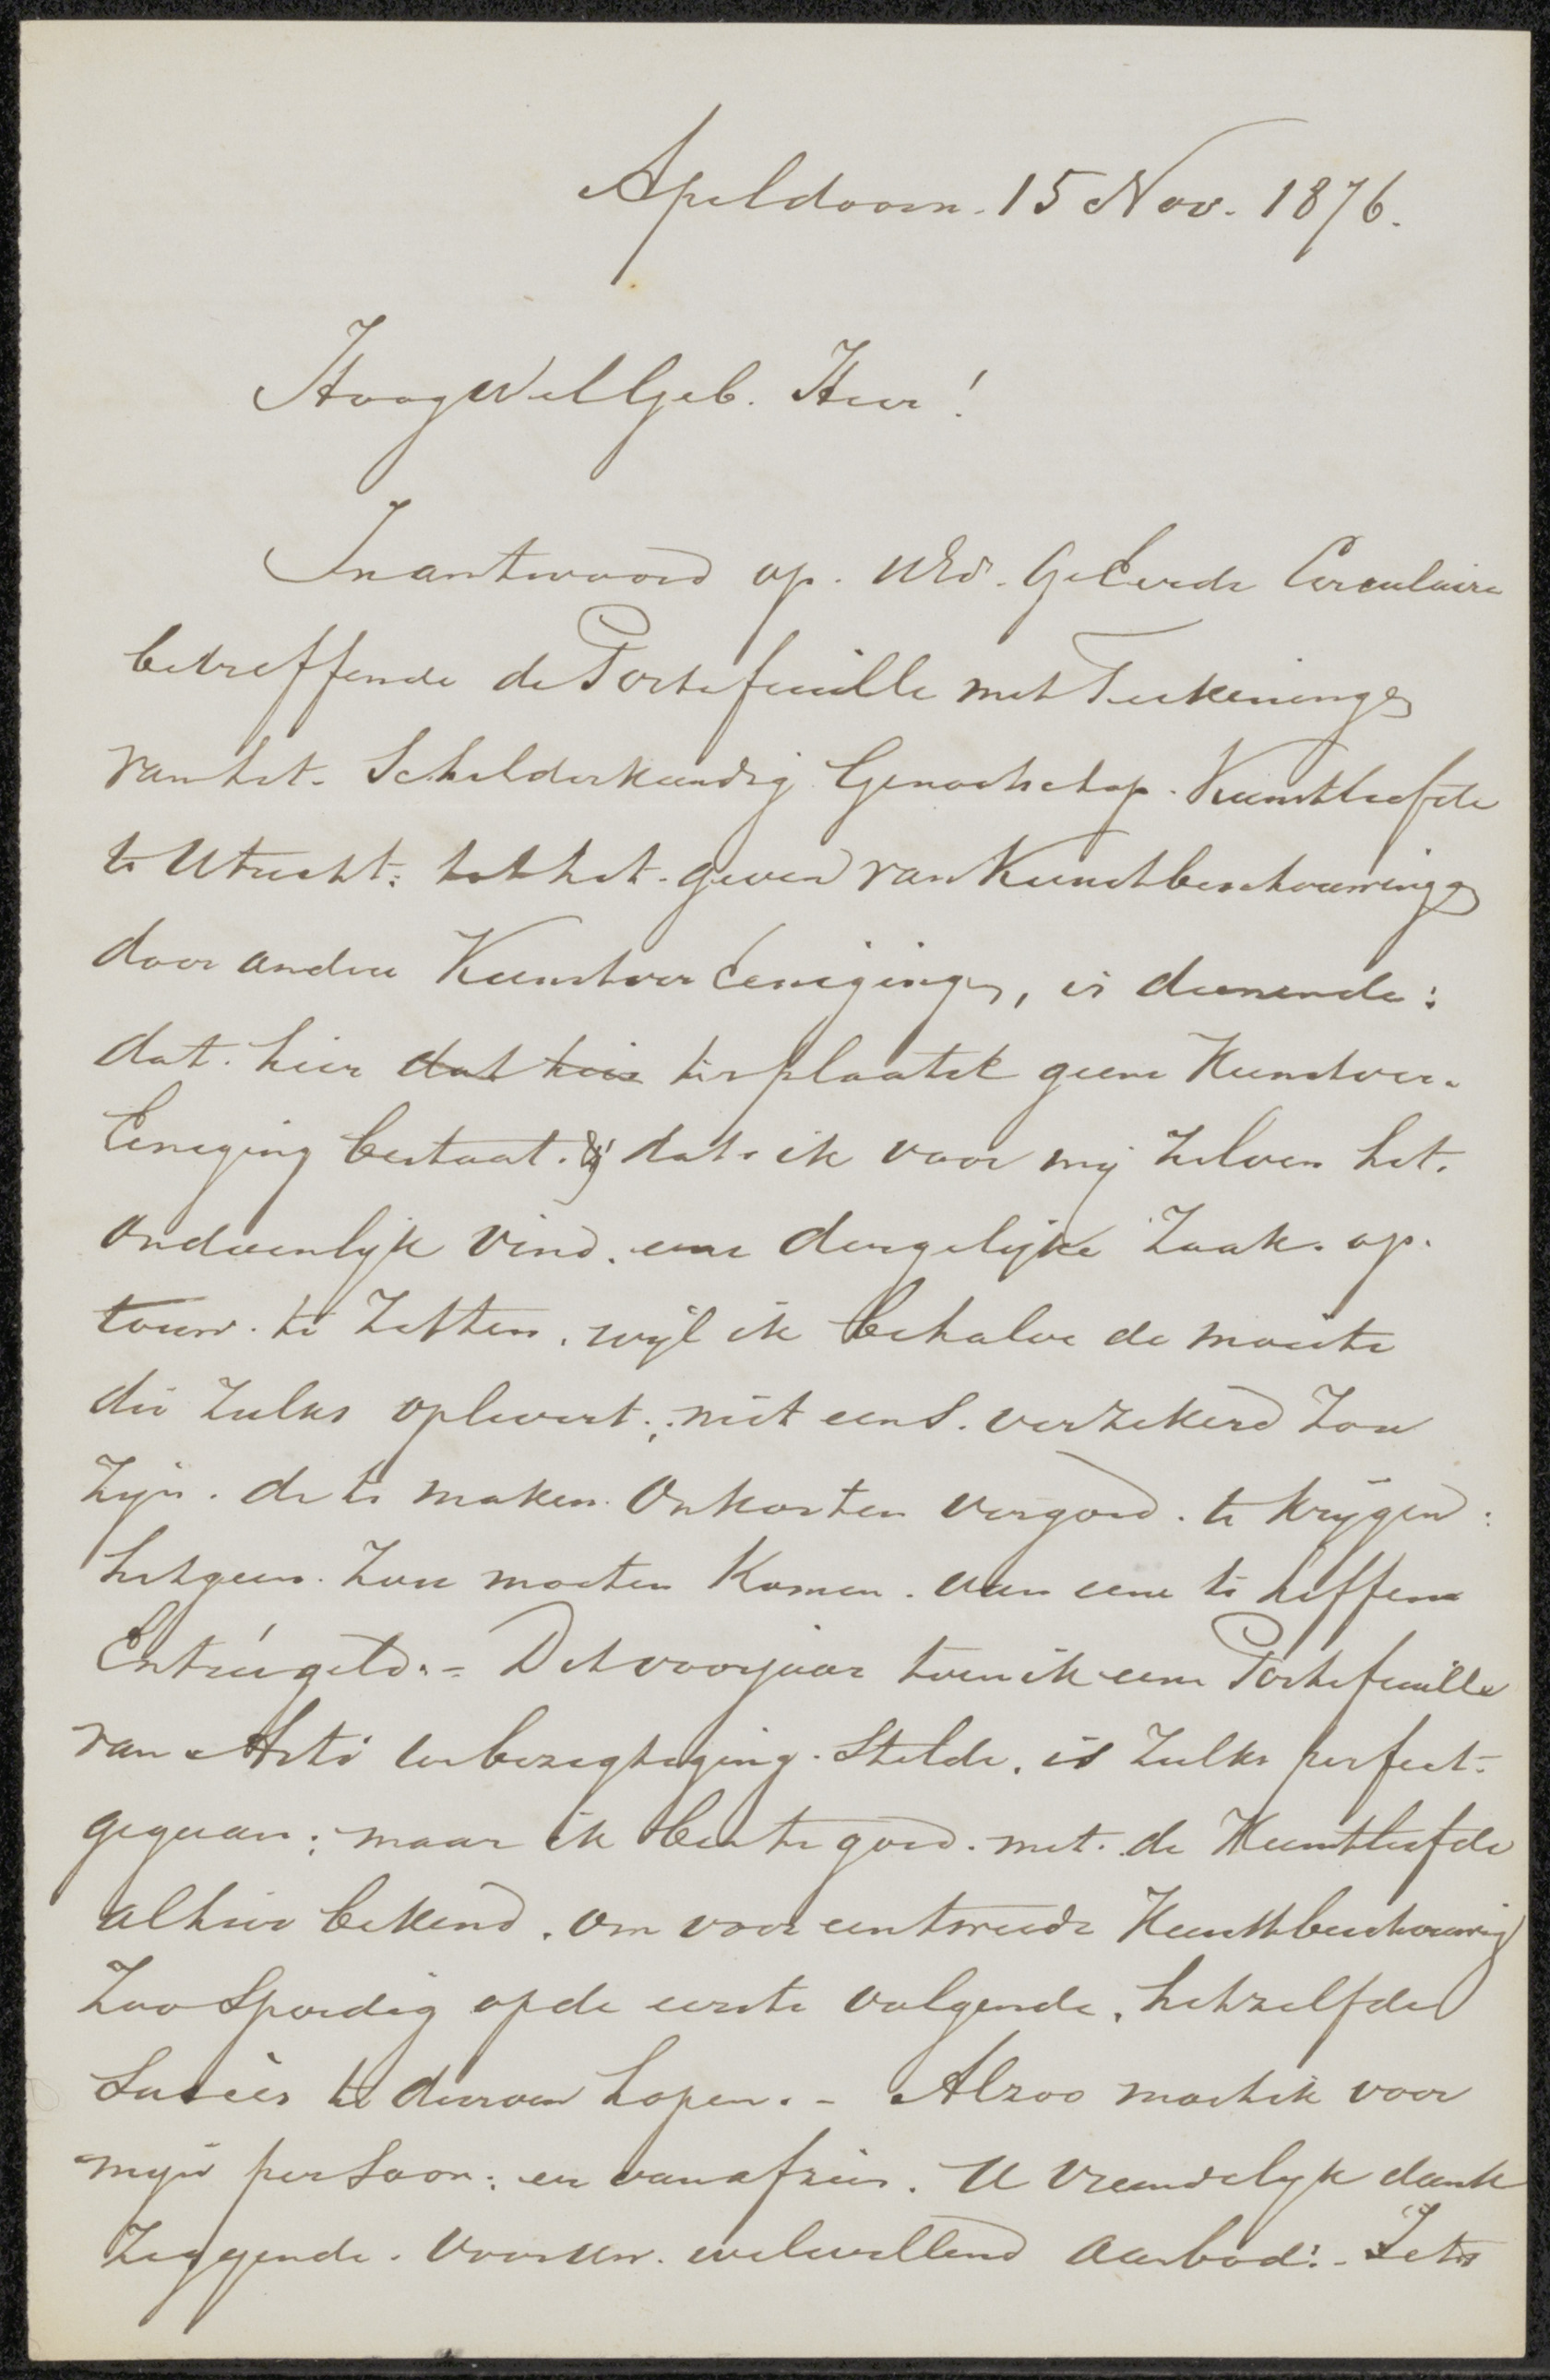 Apeldoorn. 15 Nov. 1876.
HoogWelGeb. Heer!
In antwoord op. UEd. GeEerde Circulaire
betreffende de Portefeuille met Teekeningen
van het. Schilderkundig Genootschap. Kunstliefde
te Utrecht: tot het. geven van Kunstbeschouwingen
door andere KunstverEenigingen, is dienende:
dat. hier dat hier ter plaatse geene Kunstver-
Eeniging bestaat. dat. ik voor mij zelven het.
ondoenlijk vind. eene dergelijke Zaak. op.
touw. te Zetten. wijl ik behalve de moeite
die Zulks oplevert; niet eens. verzekerd Zou
Zijn. de te maken. Onkosten vergoed. te krijgen:
hetgeen. Zou moeten Komen. van eene te heffen
Entréegeld. - Dit voorjaar toen ik eene Portefeuille
van Arti ter bezigtiging. Stelde. is Zulks perfect.
gegaan; maar ik ben te goed. met. de Kunstliefde
alhier bekend. om voor een tweede Kunstbeschouwing
Zoo Spoedig op de eerste volgende. hetzelfde
Succes te durven hopen. - Alzoo moet ik voor
mijn persoon: er van afzien. U Vriendelijk dank
Zeggende. voor Uw. welwillend Aanbod: - Iets